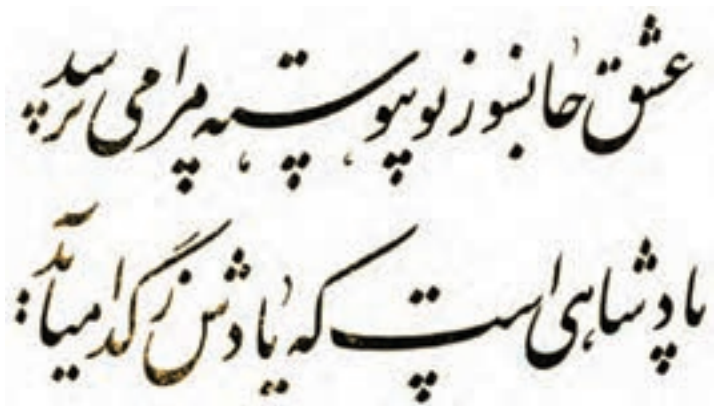 عشق جانسوز تو پیوسته مرا می پرسد
پادشاهی است که یادش ز گدا میآید